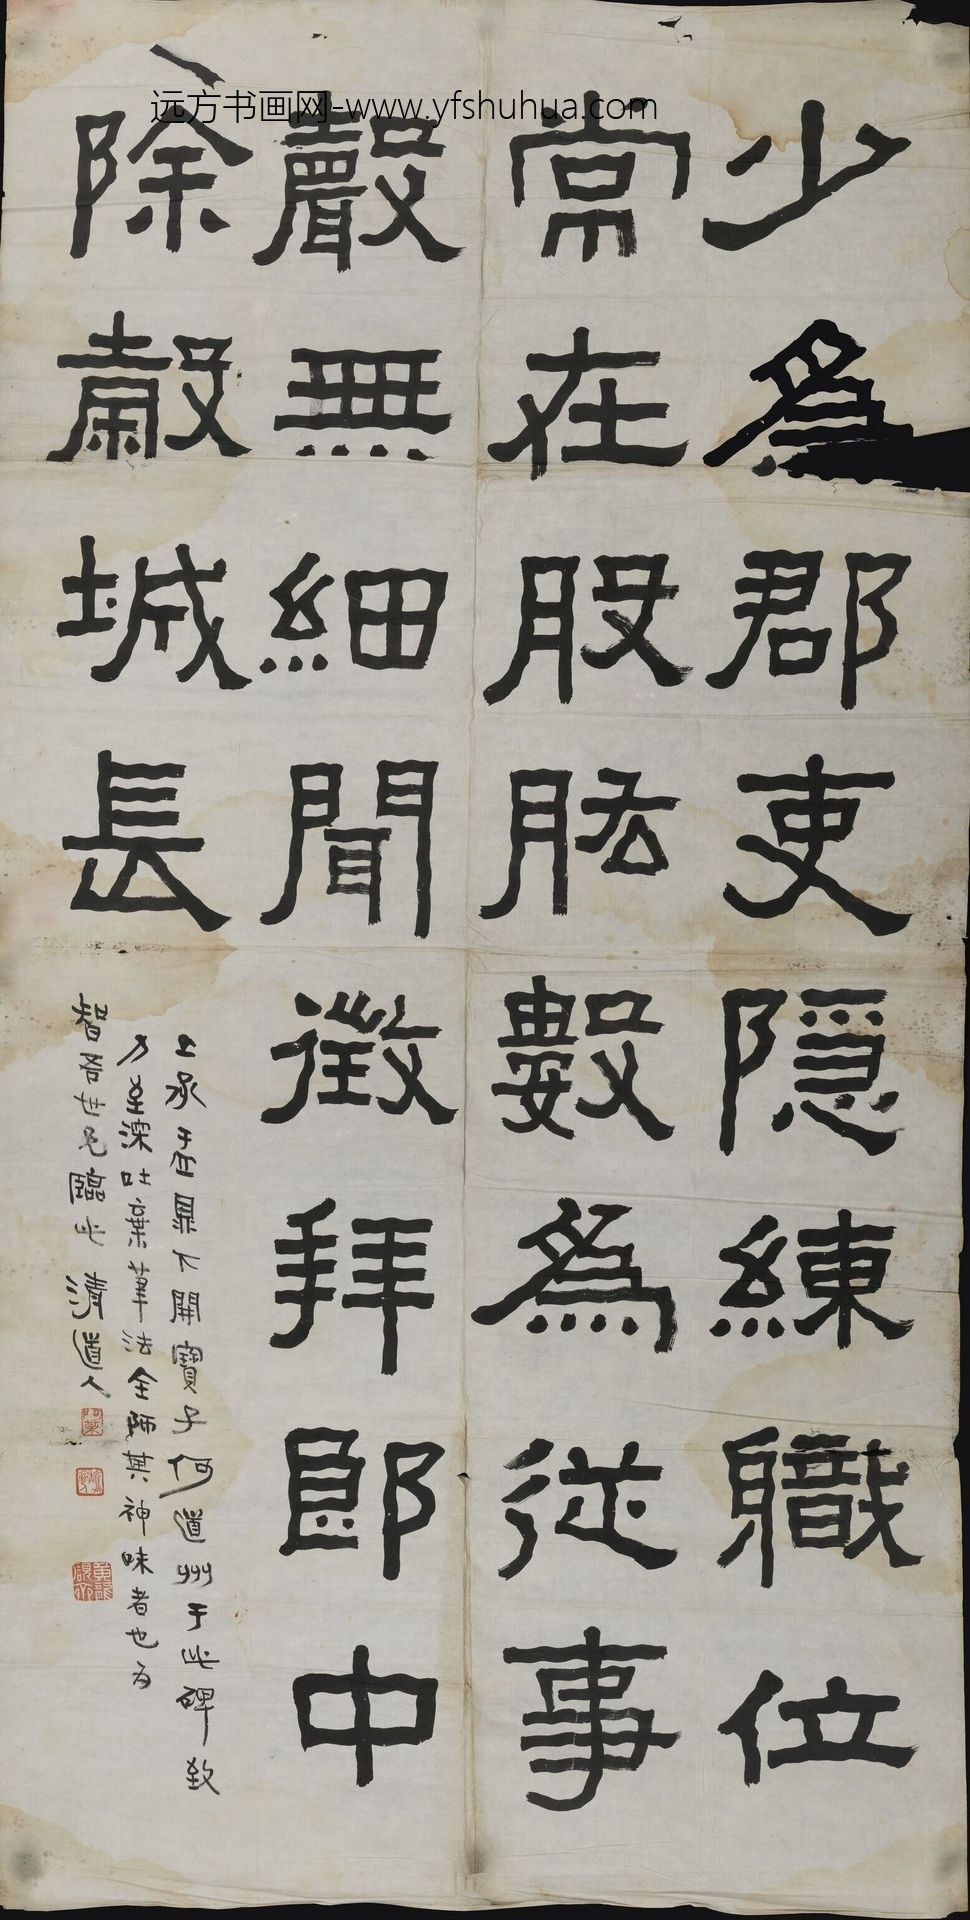 远方书画网-www.yfshuhua.com
少為郡吏隱練職位
常在股肱數為從事
聲無細聞徵拜郎中
除穀城長
上承盂鼎下開寶子何道州于此碑致
力至深吐棄筆法全師其神味者也為
智吾世兄臨此 清道人